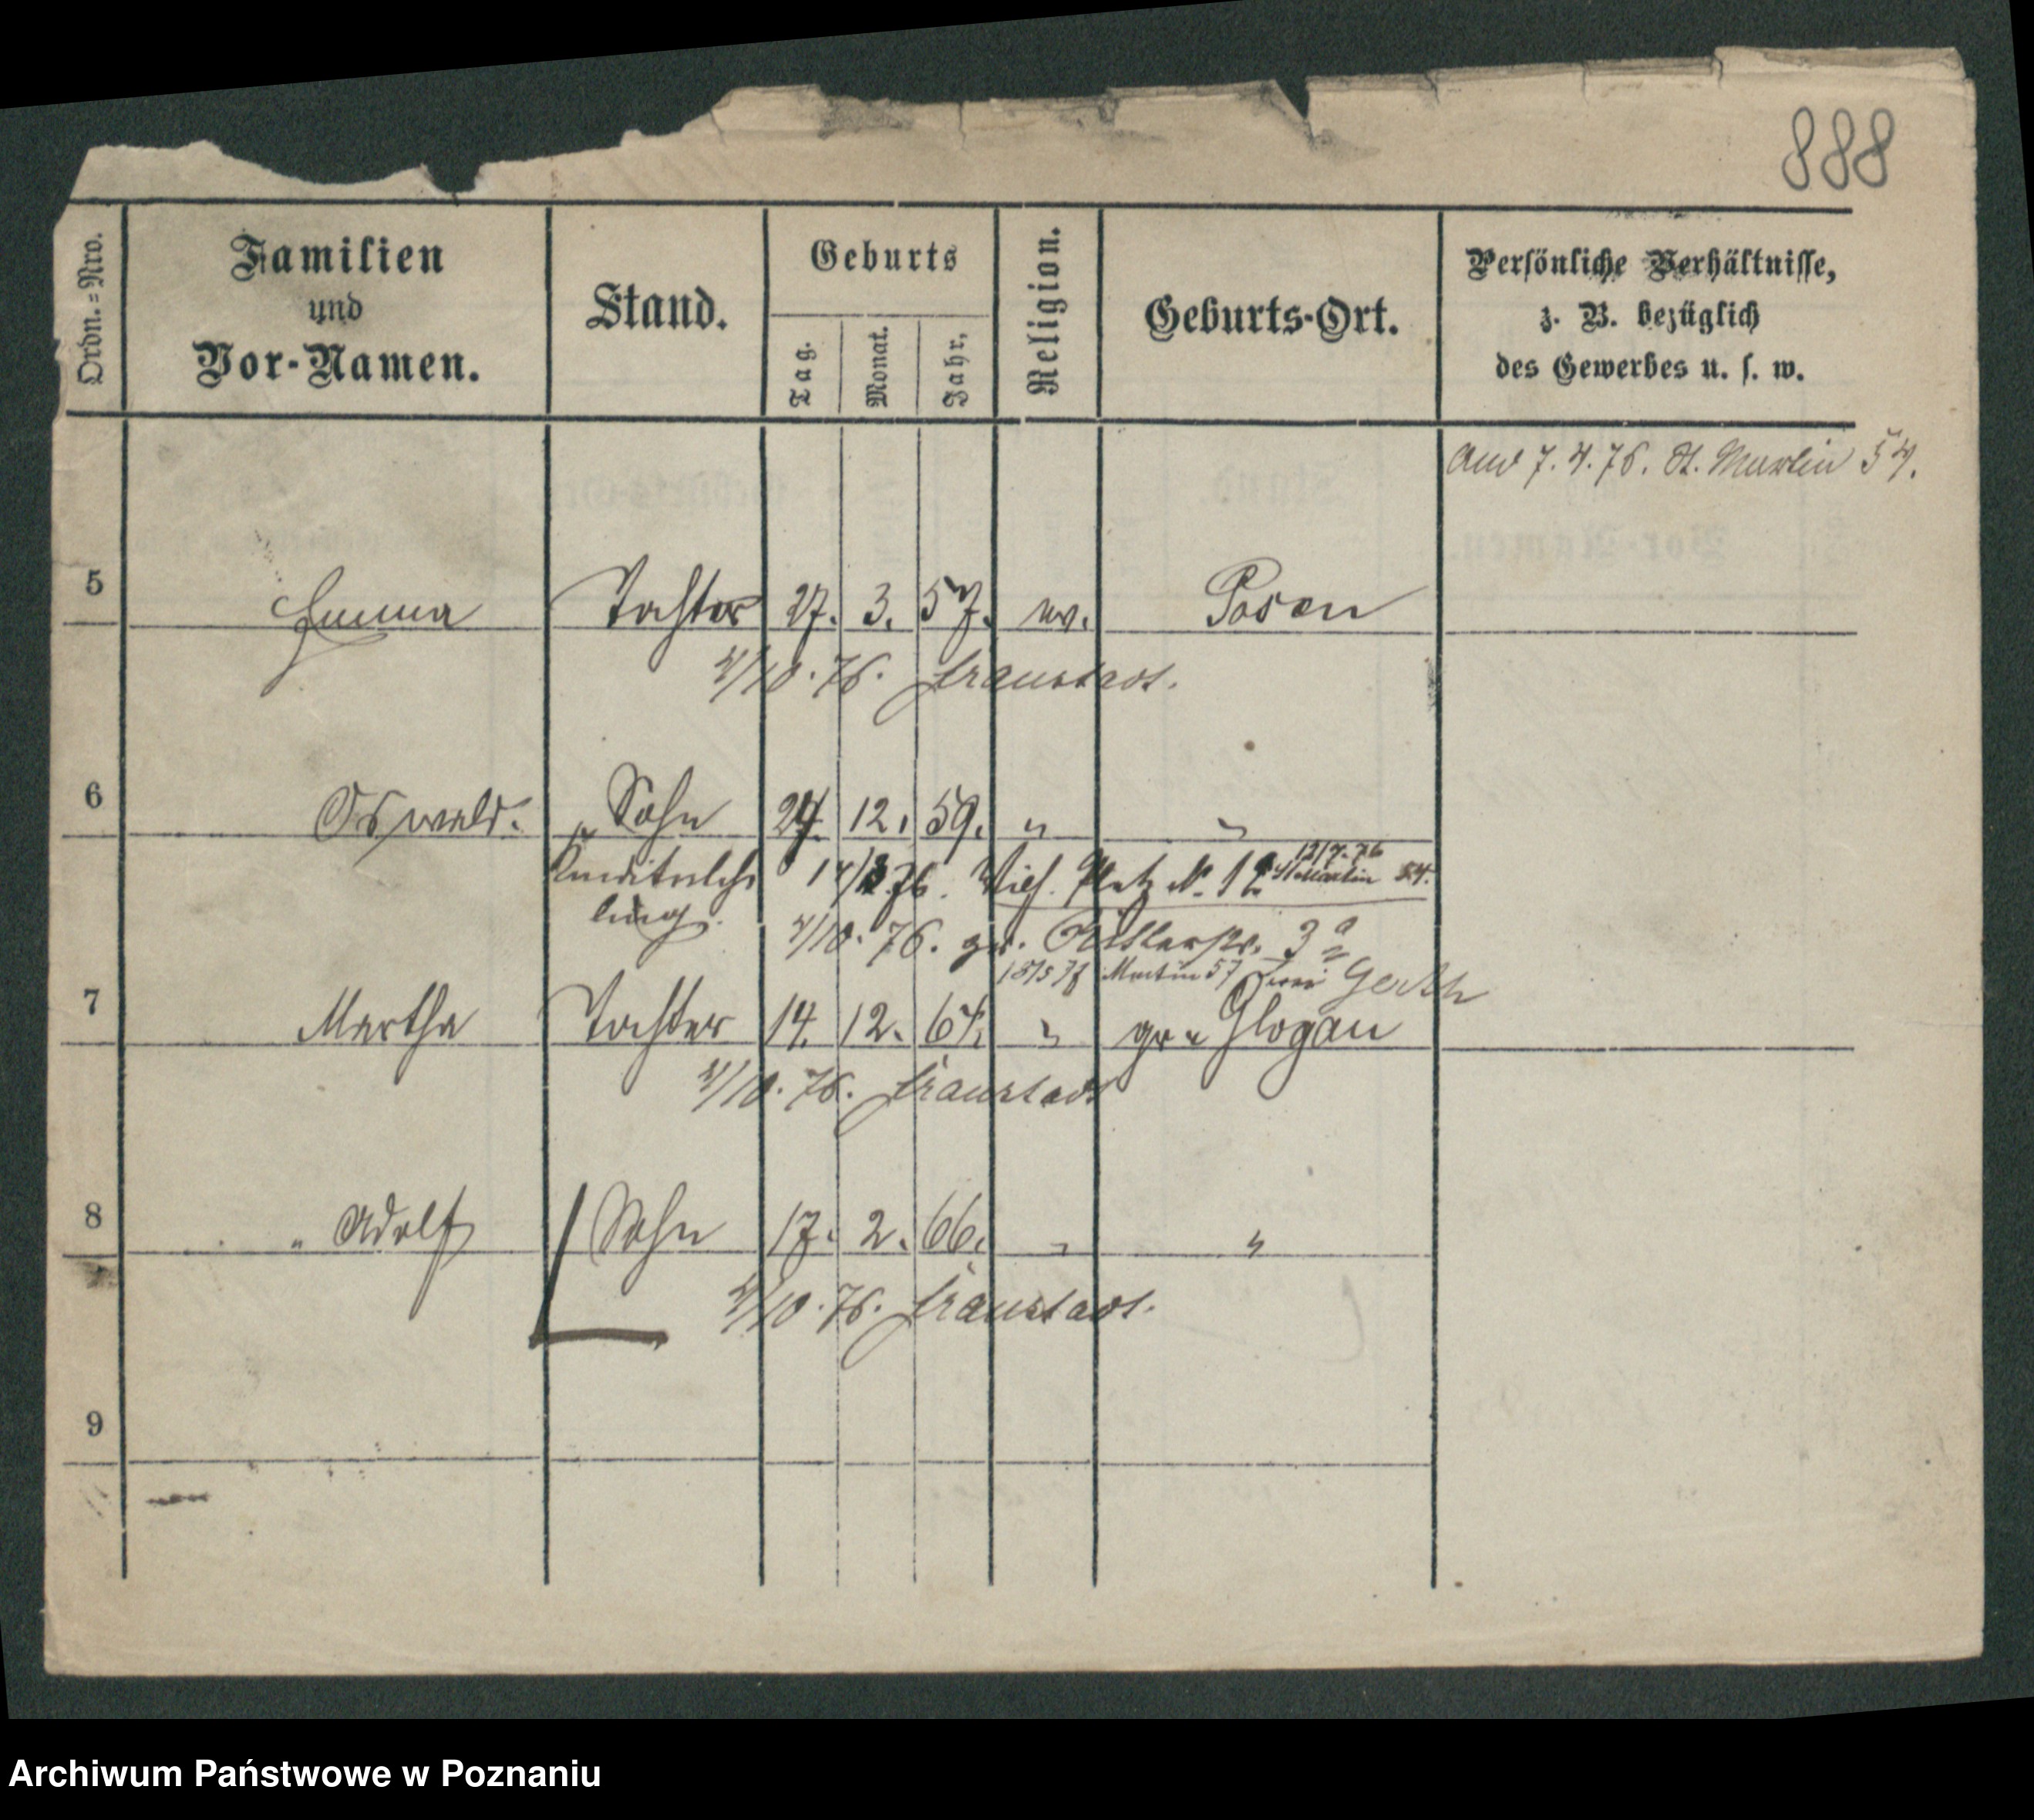 888
Ordn.=Nro.
Familien
und
Vor-Namen.
Stand.
Geburts
Tag.
Monat.
Jahr,
Religion.
Geburts-Ort.
Persönliche Verhältnisse,
z. B. bezüglich
des Gewerbes u. s. w.
7. 4. 76. St. Martin 54.
5 Emma Tochter 27. 3. 57. ev. Posen
4/10. 76. Fraustadt.
6 Oswald. Sohn 24. 12. 59. " "
12/7. 76
Conditorlehr 76. Wilh. Platz N. St Martin 54.
ling.
4/10. 76. gr. Ritterstr. 3a
Martin 57 bei
7 Martha Tochter 14. 12. 64. " gr. Glogau
4/10. 76. Fraustadt
8 " Adolf Sohn 17. 2. 66. " "
4/10. 76. Fraustadt.
9
Archiwum Państwowe w Poznaniu